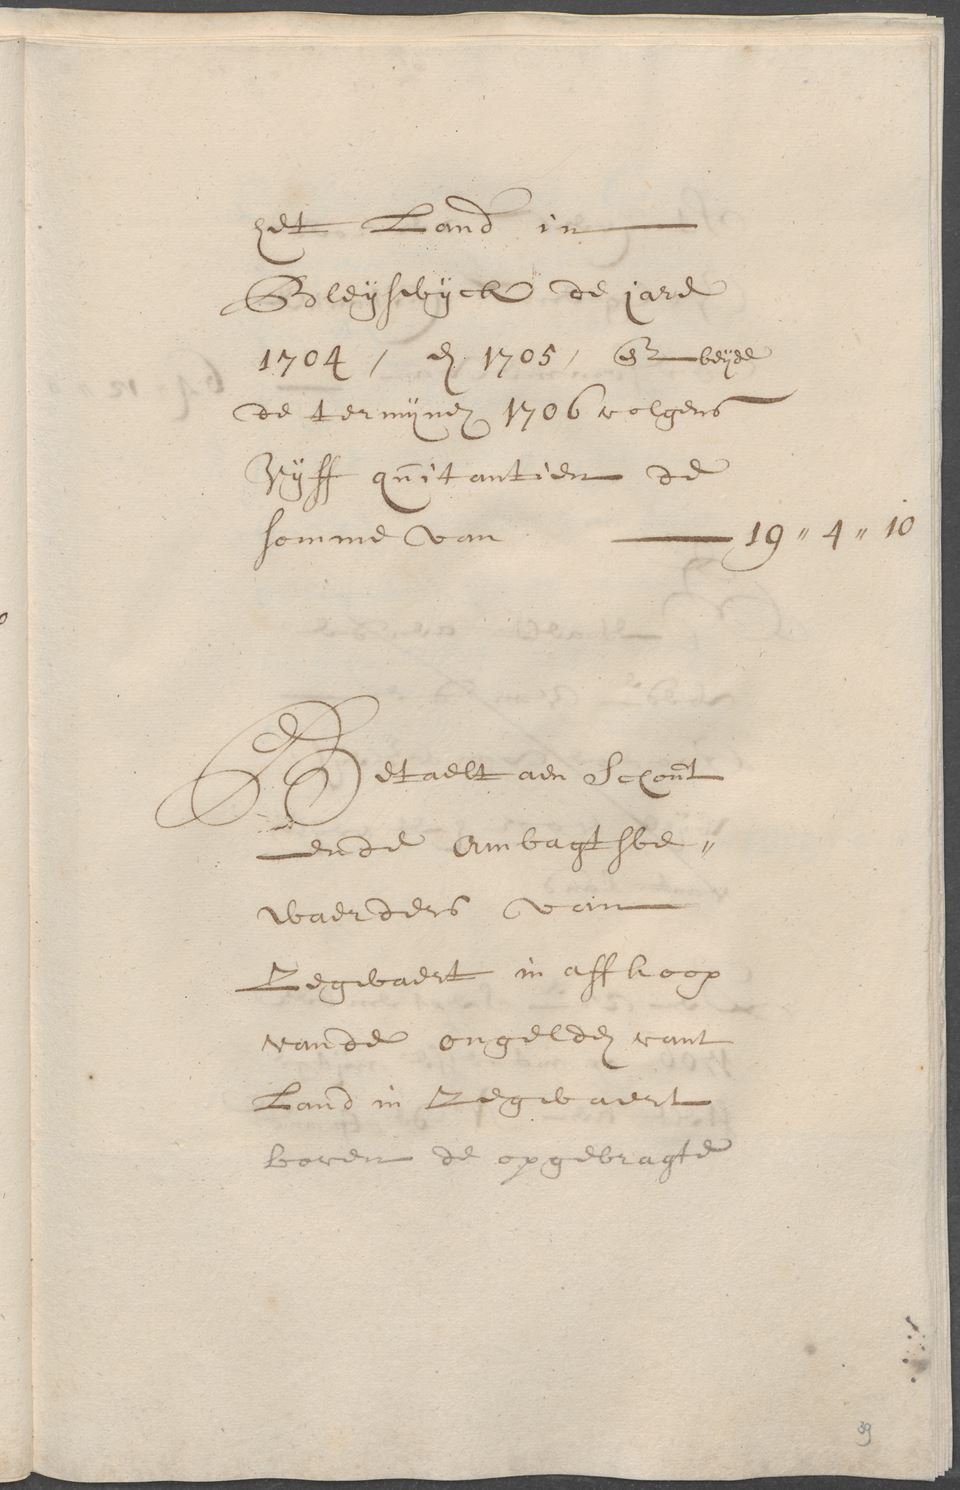 het Land in
Bleijswijck de jare
1704 / en 1705 / & beijde
de termijnen 1706 volgens
Vijff quitantien de
somme van 19 " 4 " 10
Betaelt aen Schout
ende Ambagtsbe "
waerders van
Zegwaert in affkoop
vande ongelden vant
Land in Zegwaert
boven de opgebragte
39